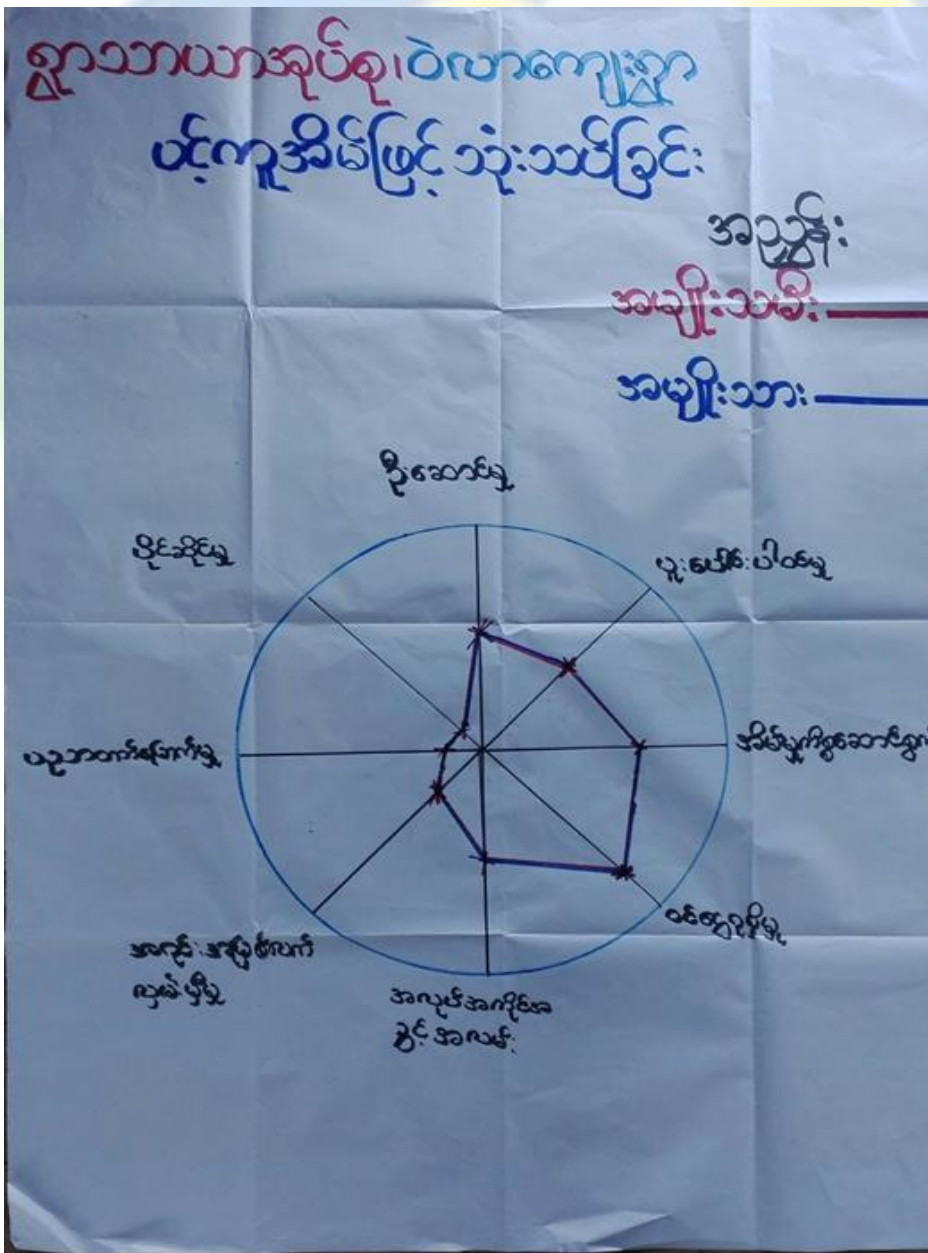 ရွာသာယာအုပ်စု၊ဝဲလာကျေးရွာ
ပင့်ကူအိမ်ဖြင့် သုံးသပ်ခြင်း
အညွှန်း
အမျိုးသမီး
အမျိုးသား
ဦးဆောင်မှု
ပိုင်ဆိုင်မှု
ပူးပေါင်းပါဝင်မှု
အိမ်မှုကိစ္စဆောင်ရွက်
ဝင်ငွေရရှိမှု
အလုပ်အကိုင်အ
ခွင့်အလမ်း
အရင်းအမြစ်လက်
လှမ်းမှီမှု